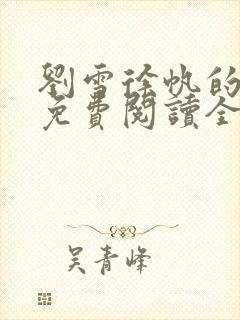 劉雪徐帆的
免費閱讀全
吳青峰